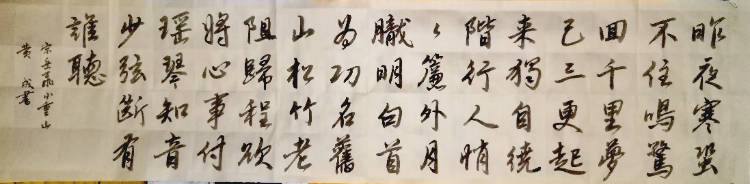 昨夜寒蛩
不住鳴驚
回千里夢
已三更起
来獨自繞
階行人悄
悄簾外月
朧明白首
為功名舊
山松竹老
阻歸程欲
將心事付
瑶琴知音
少弦断有
誰聽
宋岳飛小重山
黄成書